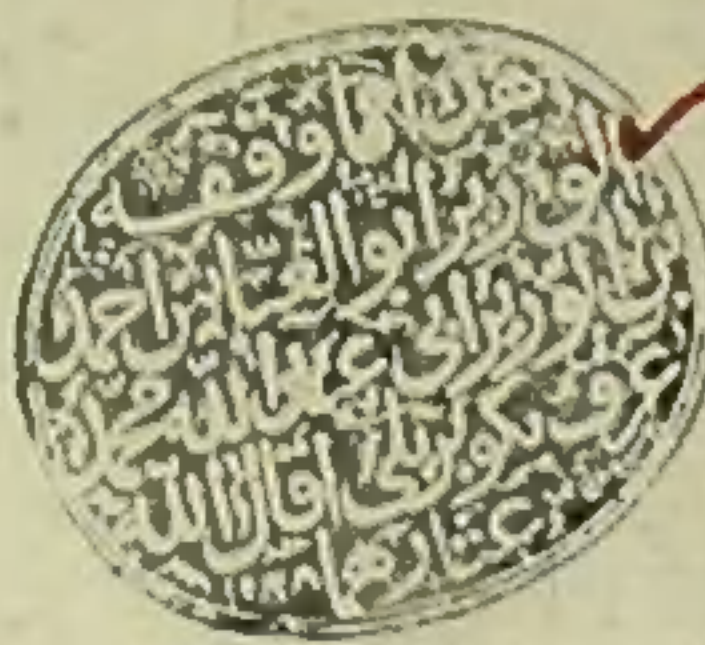 هذا ما وقفه
الوزير ابو العباس احمد
بن الوزير ابي عبد الله محمد
عرف بكوبريلي اقال الله
عثارهما
١٠٨٨